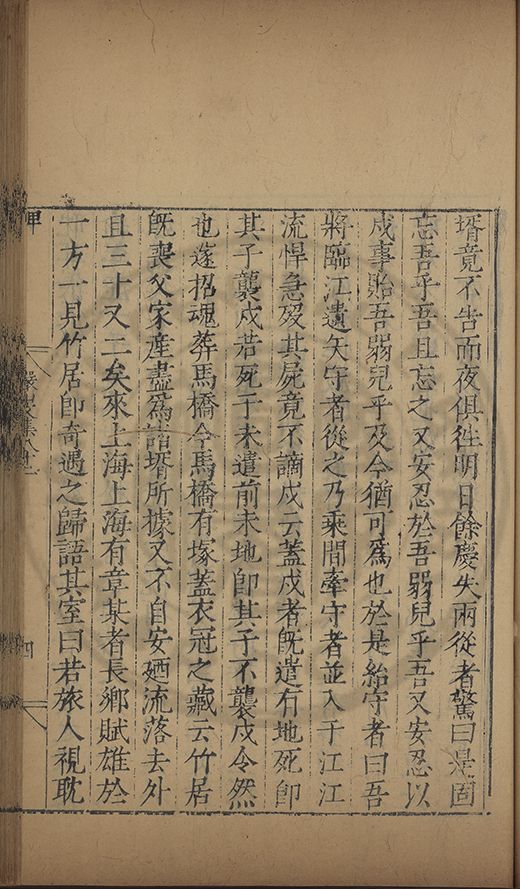 壻竟不告而夜俱徃明日餘慶失兩從者驚曰是固
忘吾乎吾且忘之又安忍於吾弱兒乎吾又安忍以
戍事貽吾弱兒乎及今猶可爲也於是紿守者曰吾
將臨江遺矢守者從之乃乘間牽守者並入于江江
流悍急歿其屍竟不謫戍云蓋戍者旣遣有地死卽
其子襲戍若死于未遣前未地卽其子不襲戍令然
也遂招魂葬馬橋今馬橋有塚蓋衣冠之藏云竹居
旣喪父家産盡爲諸壻所據又不自安廼流落去外
且三十又二矣來上海上海有章某者長鄉賦雄於
一方一見竹居卽奇遇之歸語其室曰若旅人視耽
四